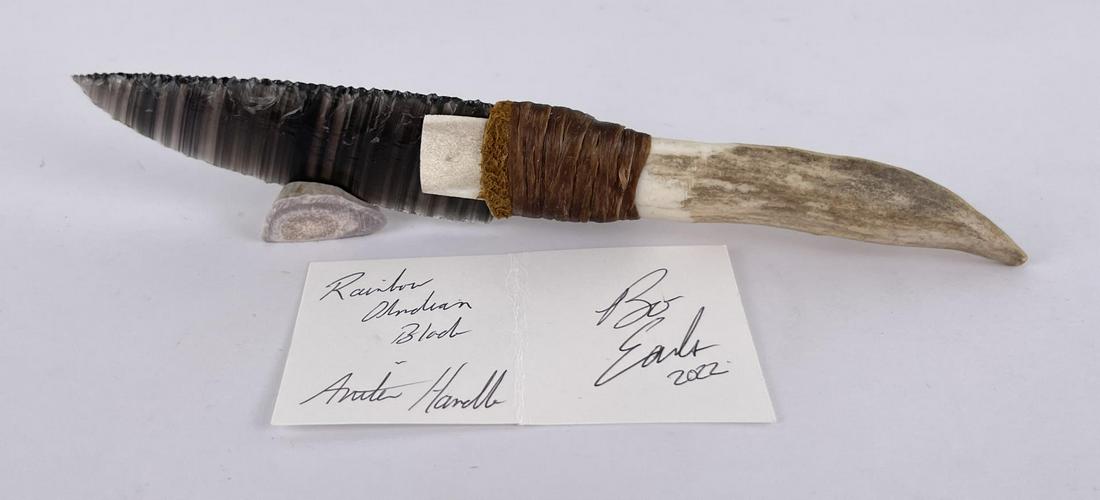 Rainbow
Obsidian
Blade
Antler Handle
Bo
Earls
2022